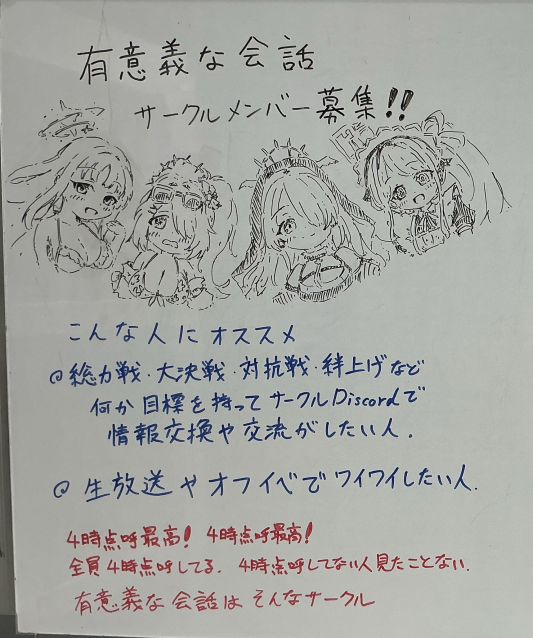 有意義な会話
サークルメンバー募集!!
こんな人にオススメ
@総力戦・大決戦・対抗戦・絆上げなど
何か目標を持ってサークルDiscordで
情報交換や交流がしたい人.
@生放送やオフイベでワイワイしたい人.
4時点呼最高! 4時点呼最高!
全員4時点呼してる. 4時点呼してない人見たことない.
有意義な会話はそんなサークル